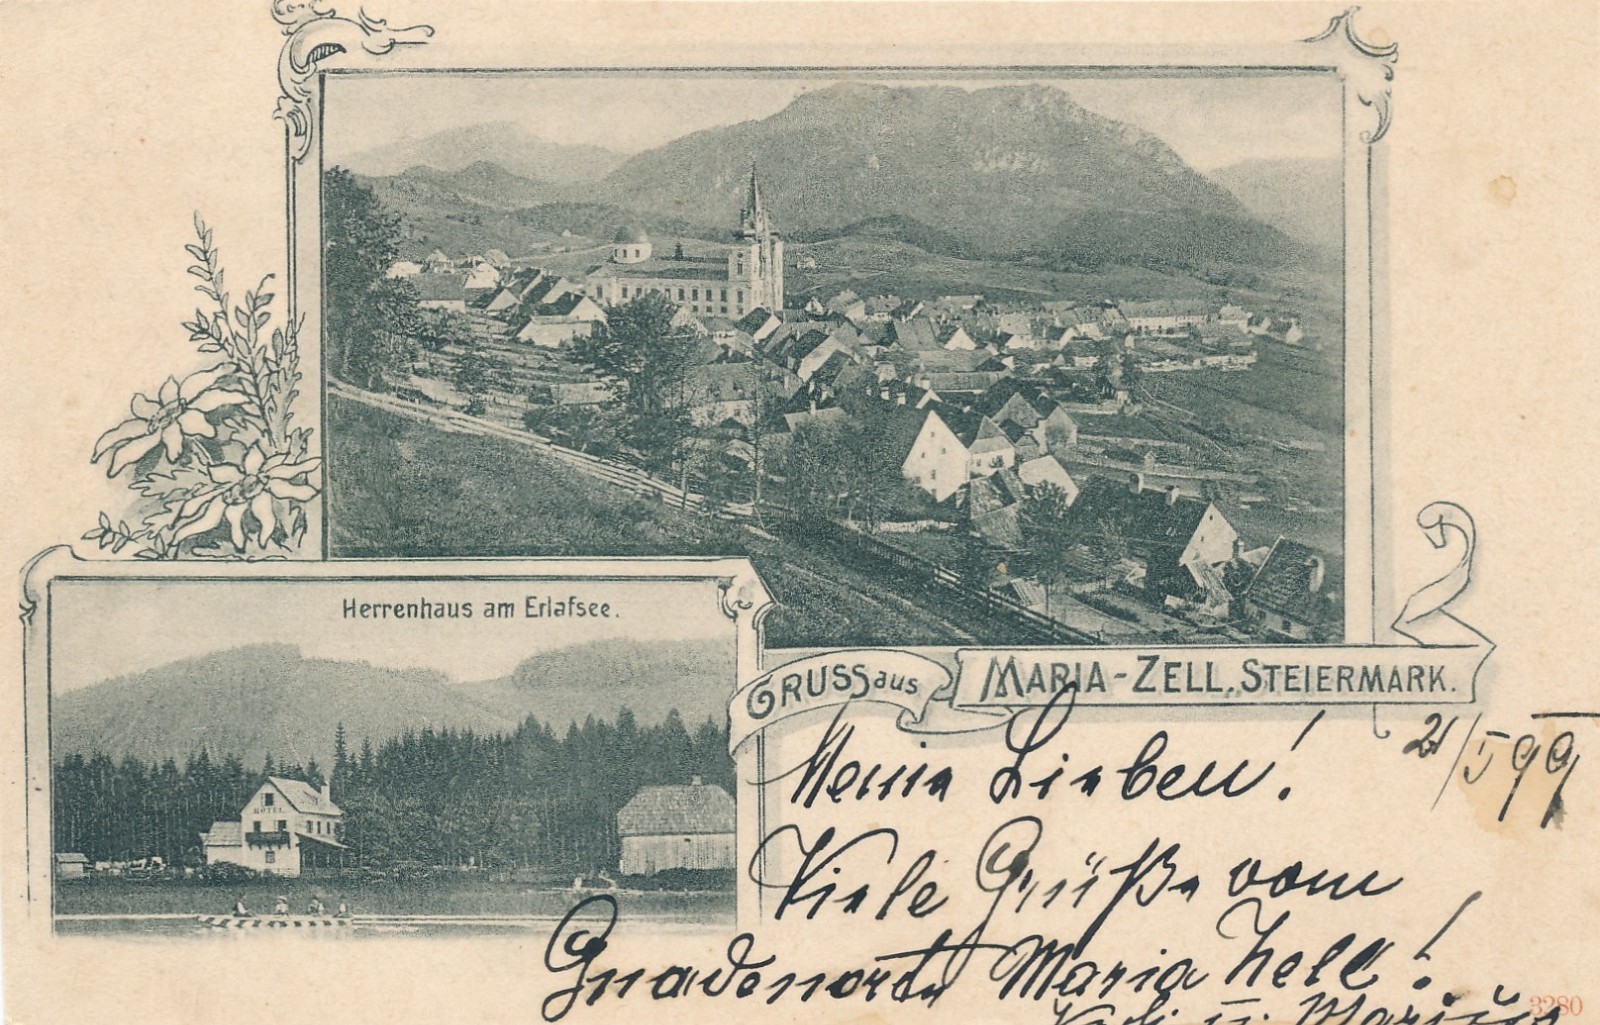 Herrenhaus am Erlafsee.
HOTEL
GRUSS aus MARIA-ZELL, STEIERMARK.
21/5 99
Meine Lieben!
Viele Grüße vom
Gnadenorte Maria Zell!
u. Marius
3280